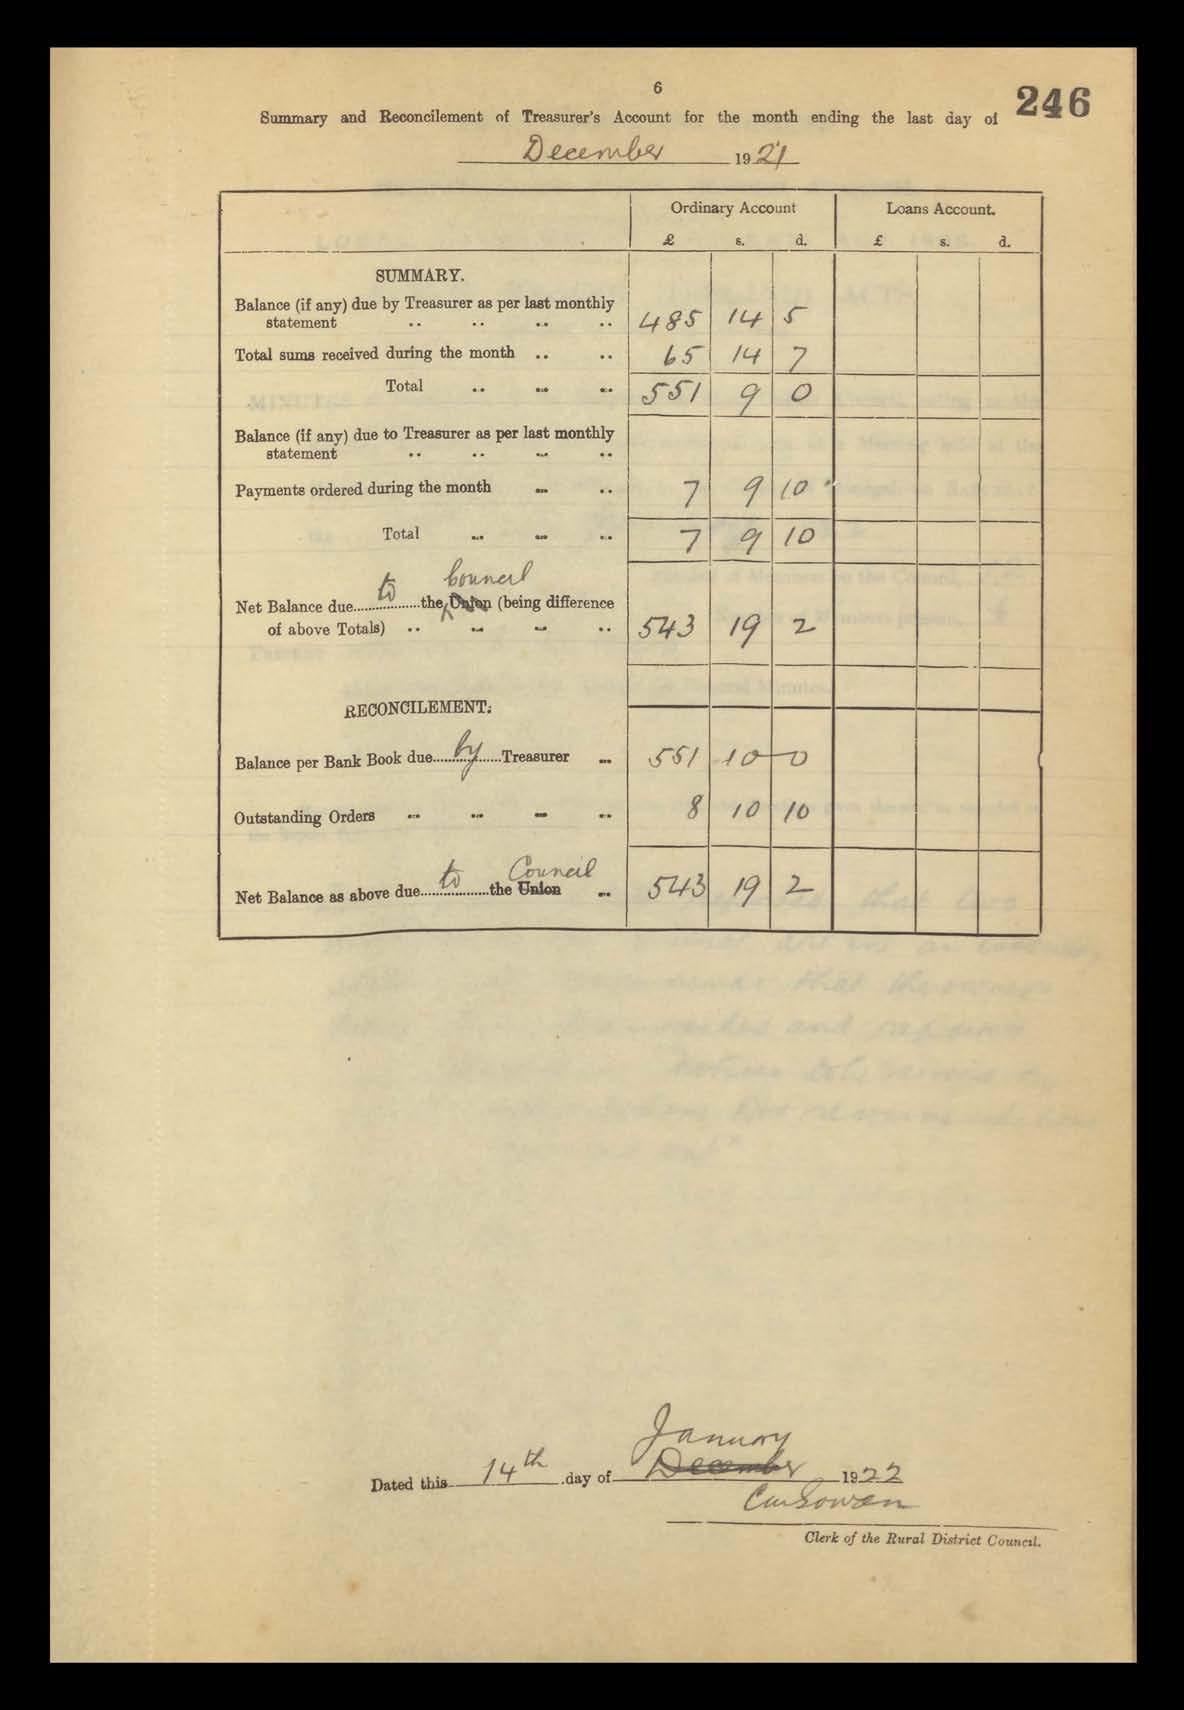 6
246
Summary and Reconcilement of Treasurer's Account for the month ending the last day of
December 1921
Ordinary Account Loans Account.
£ s. d. £ s. d.
SUMMARY.
Balance (if any) due by Treasurer as per last monthly
statement .. .. .. .. 485 14 5
Total sums received during the month .. .. 65 14 7
Total .. .. .. 551 9 0
Balance (if any) due to Treasurer as per last monthly
statement .. .. .. ..
Payments ordered during the month .. .. 7 9 10
Total .. .. .. 7 9 10
to Council
Net Balance due..................the Union (being difference
of above Totals) .. .. .. .. 543 19 2
RECONCILEMENT:
Balance per Bank Book due....by....Treasurer .. 551 10 0
Outstanding Orders .. .. .. .. 8 10 10
to Council
Net Balance as above due..................the Union .. 543 19 2
January
Dated this 14th day of December 1922
Clerk of the Rural District Council.